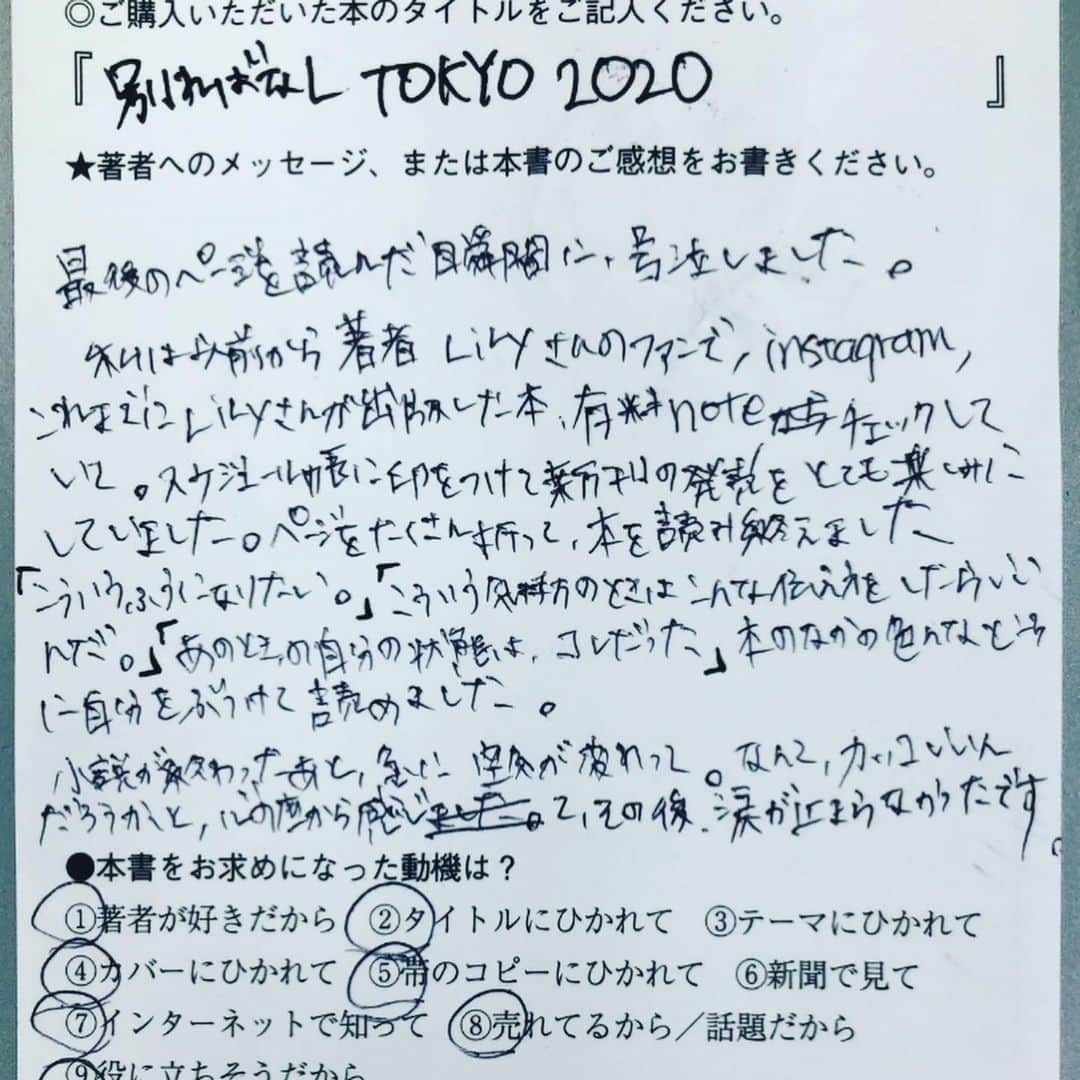 ◎ご購入いただいた本のタイトルをご記入ください。
『別ればなし TOKYO 2020 』
★著者へのメッセージ、または本書のご感想をお書きください。
最後のページを読んだ瞬間に、号泣しました。
私は以前から著者 LiLyさんのファンで, instagram,
これまでにLiLyさんが出版した本、有料note チェックして
いて。スケジュール帳に印をつけて新刊の発売をとても楽しみに
していました。ページをたくさん折って、本を読み終えました
「こういうふうになりたい。」「こういう気持方のときはこんな伝え方をしたらいい
んだ。」「あのときの自分の状態は、コレだった」本のなかの色んなところ
に自分をぶつけて読めました。
小説が終わったあと、急に空気が変わって。なんて,カッコいいん
だろうかと,心の底から感じて、その後、涙が止まらなかったです。
●本書をお求めになった動機は?
①著者が好きだから ②タイトルにひかれて ③テーマにひかれて
④カバーにひかれて ⑤帯のコピーにひかれて ⑥新聞で見て
⑦インターネットで知って ⑧売れてるから/話題だから
⑨役に立ちそうだから